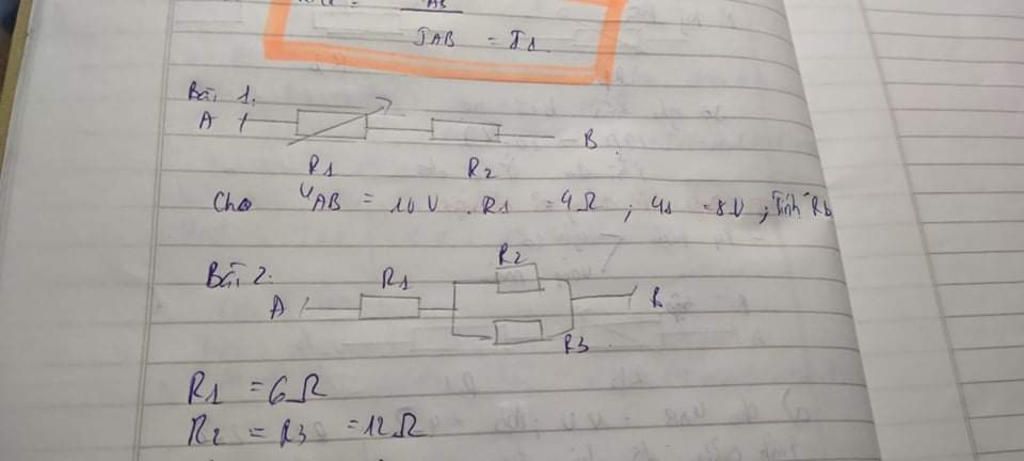 JAB = I1
Bài 1.
A B
R1 R2
Cho UAB = 10 V . R1 = 4 Ω ; U1 = 8 V ; Tính Rb
R2
Bài 2. R1
A B
R3
R1 = 6 Ω
R2 = R3 = 12 Ω